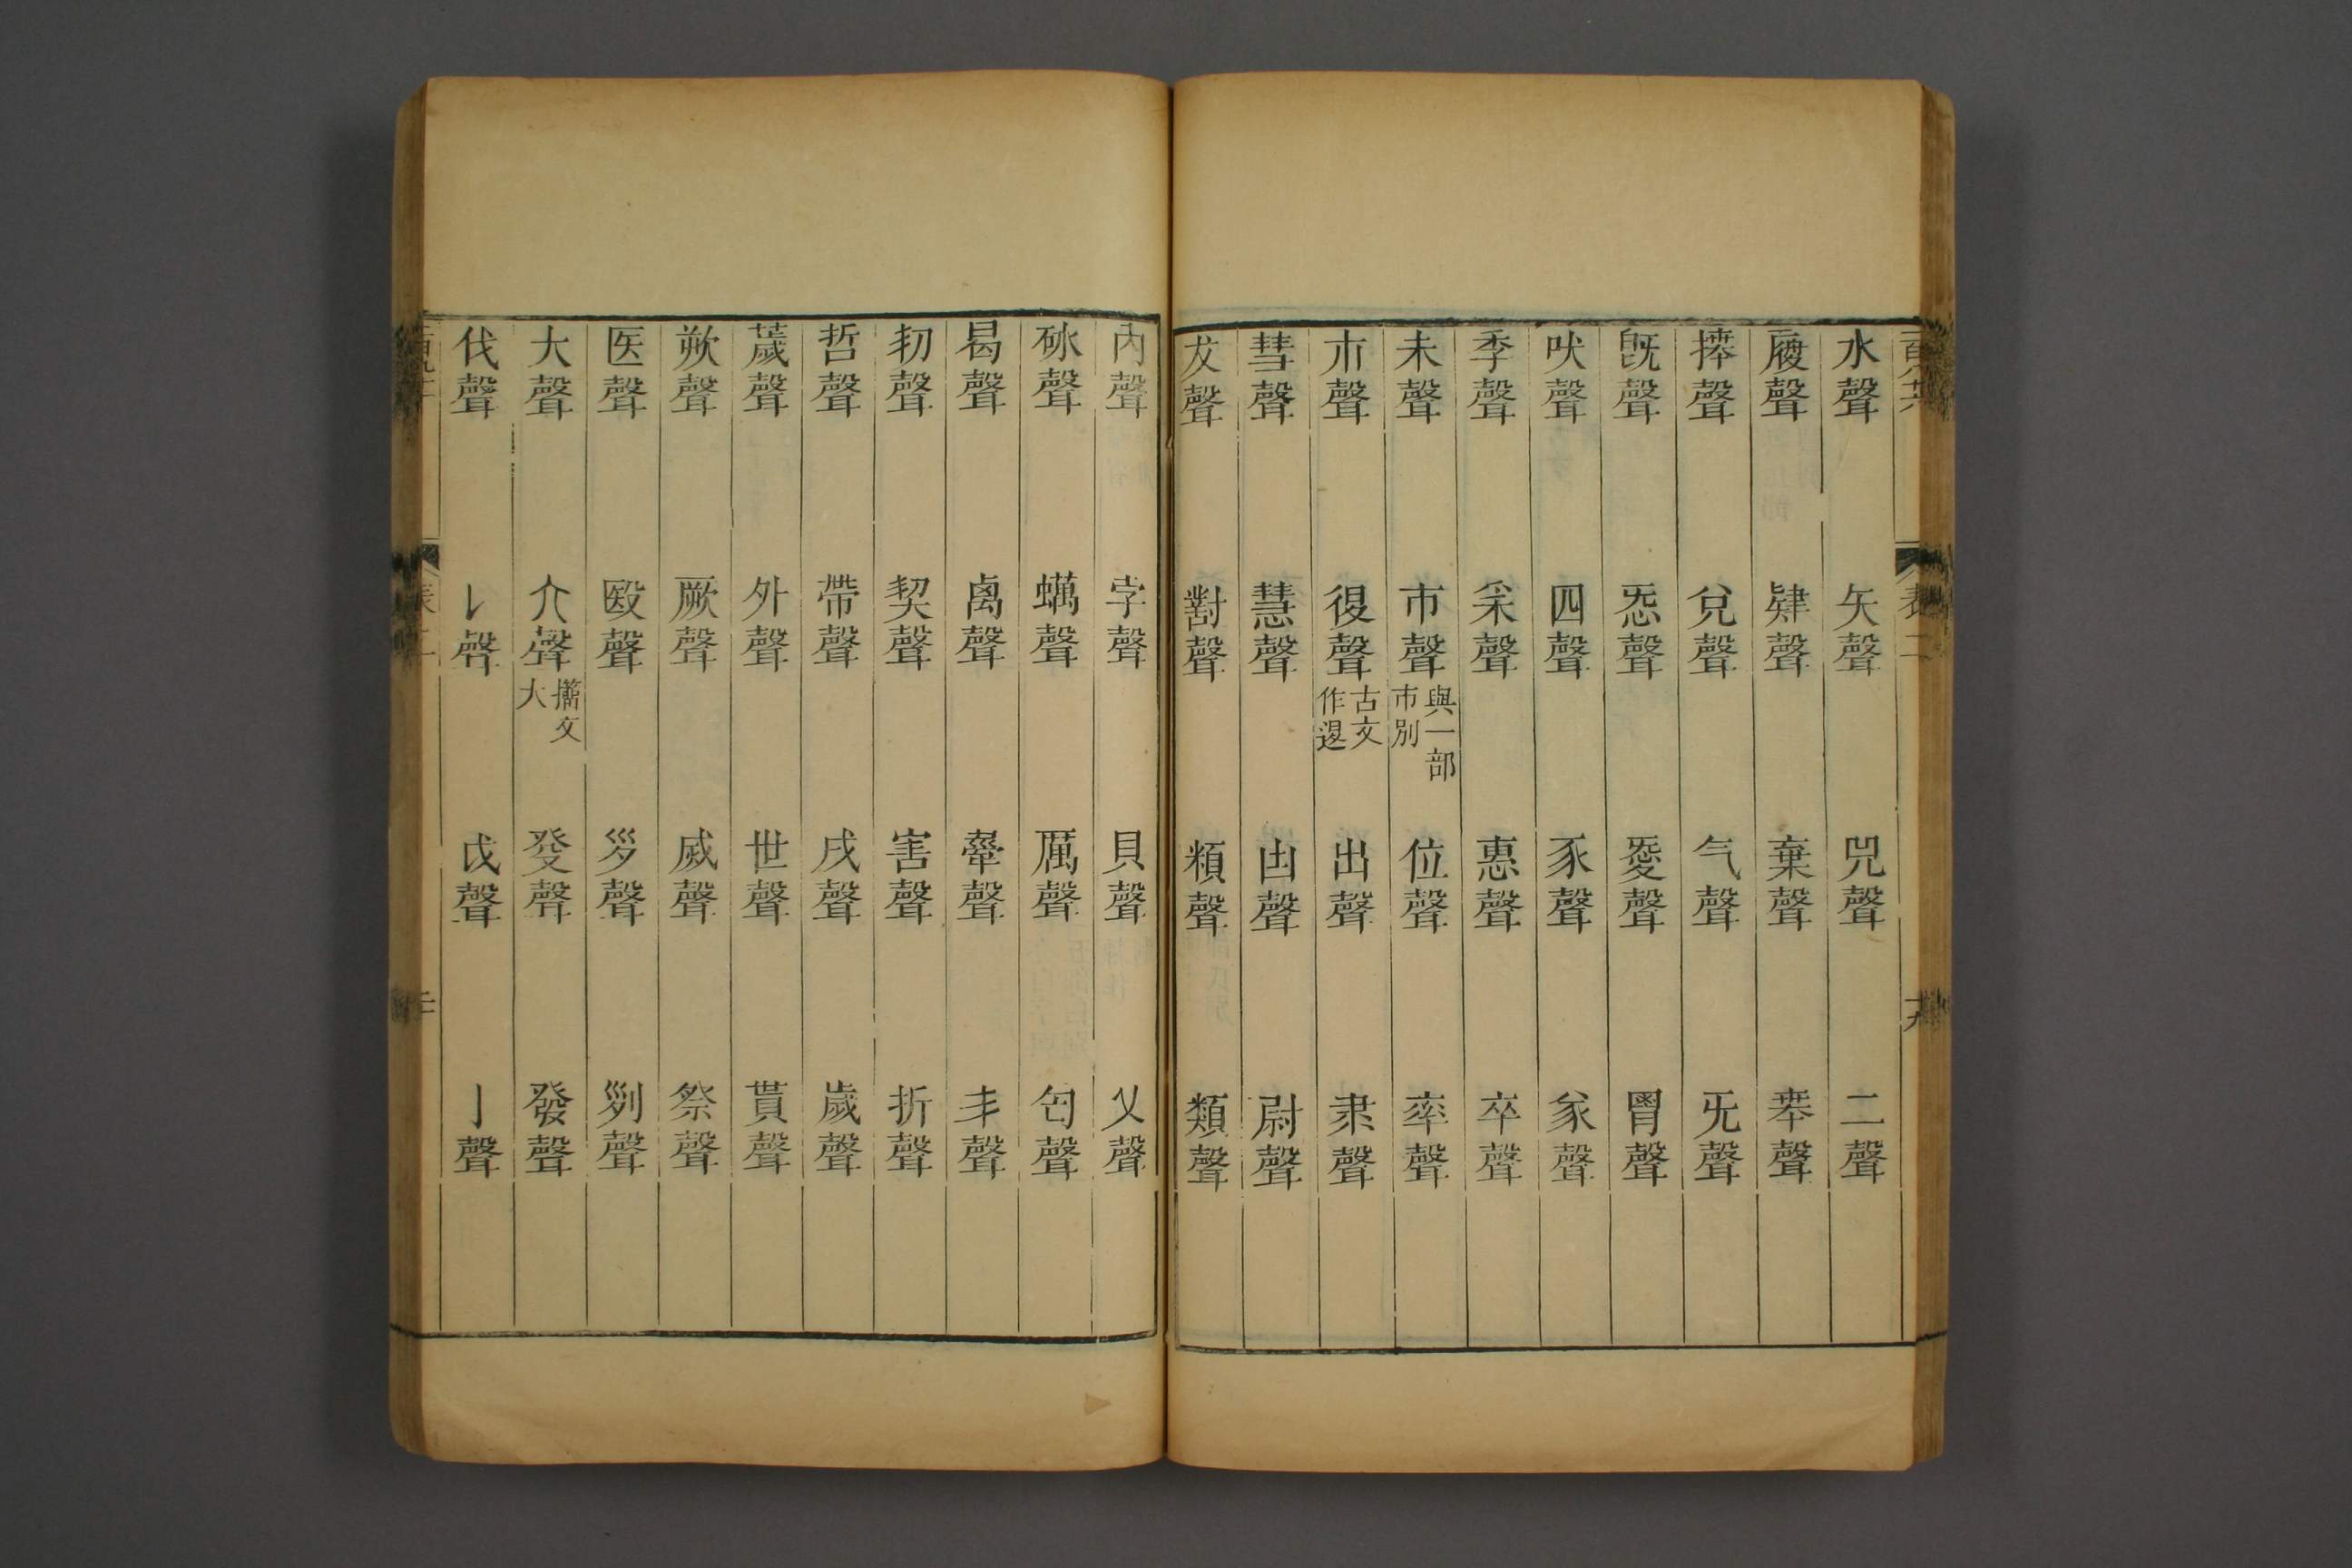 水聲 矢聲 兕聲 二聲
履聲 肄聲 棄聲
捧聲 兌聲 气聲 旡聲
旣聲 㤅聲 㤅聲 胃聲
吠聲 四聲 豕聲 㒸聲
季聲 采聲 惠聲 卒聲
未聲 市聲 與一部市別 位聲 率聲
朮聲 復聲 古文作𨓤 出聲 隶聲
彗聲 慧聲 甶聲 尉聲
犮聲 對聲 頪聲 類聲
內聲 孛聲 貝聲 乂聲
砅聲 蠇聲 厲聲 匃聲
曷聲 禼聲 丯聲
㓞聲 契聲 害聲 折聲
哲聲 帶聲 戌聲 歲聲
薉聲 外聲 世聲 貰聲
欮聲 厥聲 威聲 祭聲
医聲 殹聲 歺聲 𠛱聲
大聲 亣聲 籒文大 癹聲 發聲
伐聲 𠄌聲 戉聲 亅聲
表二
十九